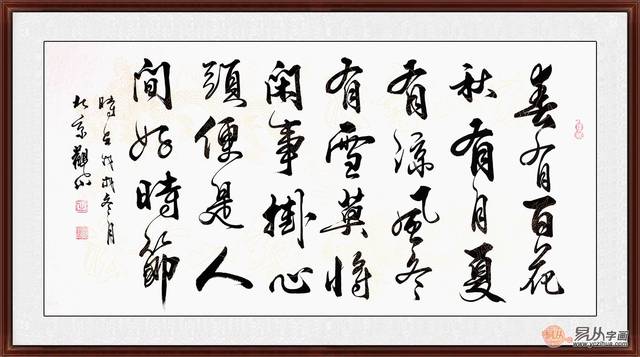 春有百花
秋有月夏
有涼風冬
有雪莫將
閑事掛心
頭便是人
間好時節
時在戊戌冬月
易从字画
www.yczihua.com